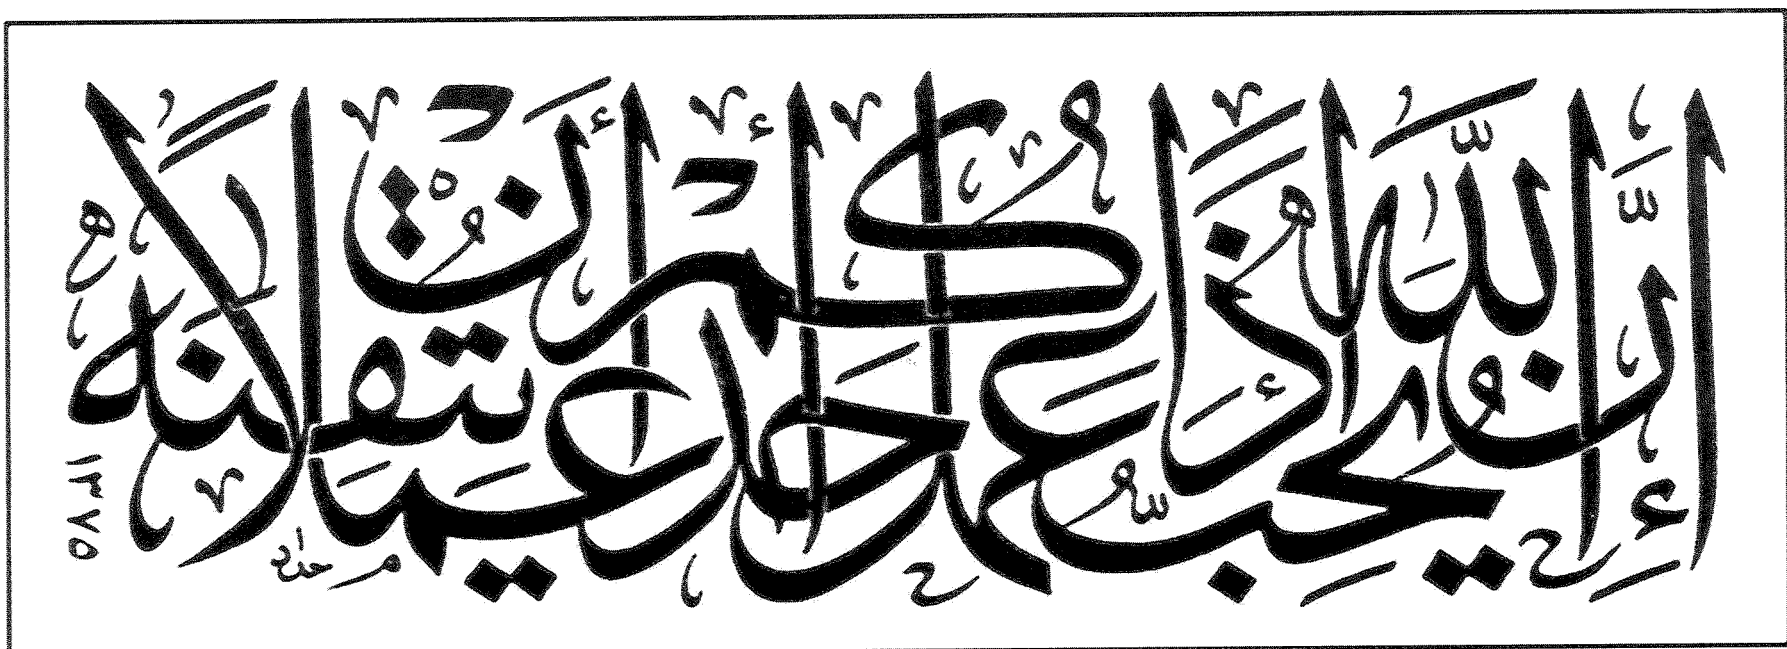 إِنَّ اللّٰهَ يُحِبُّ إِذَا عَمِلَ أَحَدُكُمْ عَمَلًا أَنْ يُتْقِنَهُ
١٣٧٥